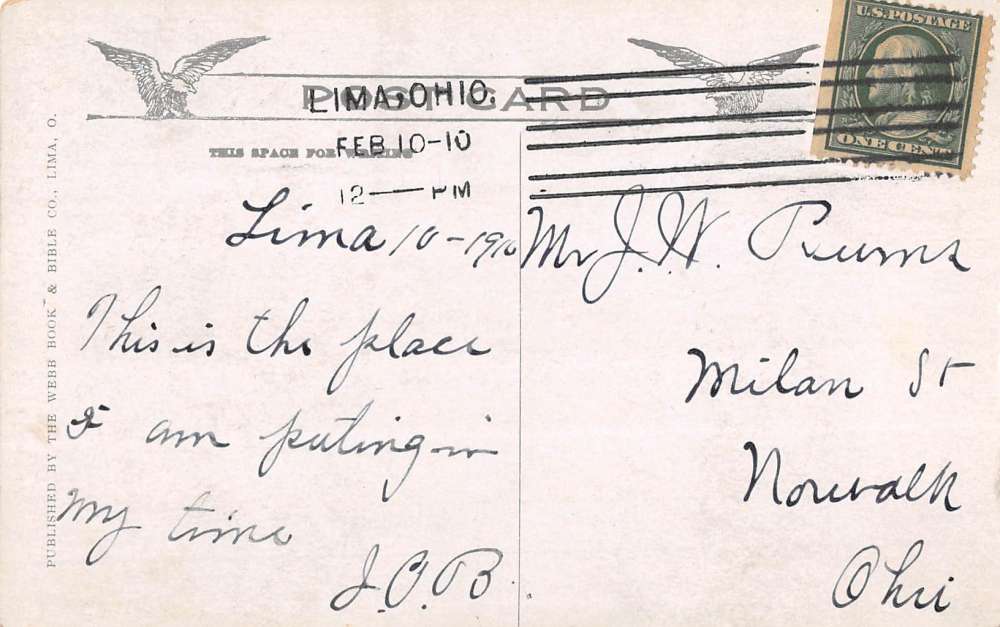 U.S. POSTAGE
ONE CENT
POST CARD
LIMA, OHIO.
FEB 10-10
12 — PM
THIS SPACE FOR WRITING
PUBLISHED BY THE WEBB BOOK & BIBLE CO., LIMA, O.
Lima 10-1910
This is the place
I am puting in
My time
J.O.B.
Mr J. W.
Milan St
Norwalk
Ohio